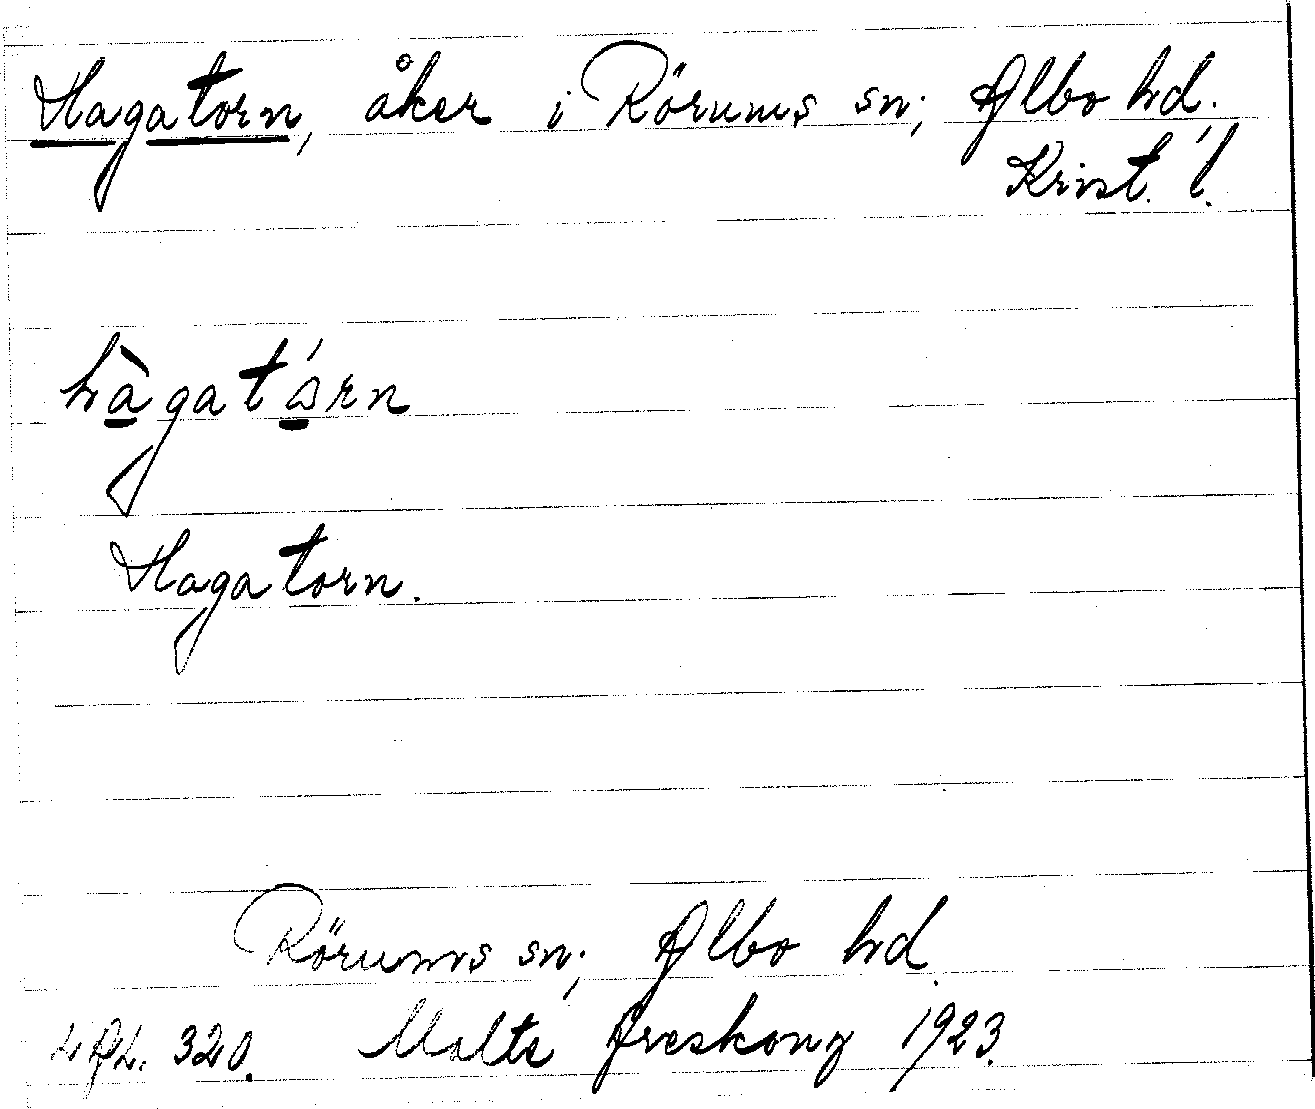 Hagatorn, åker i Rörums sn; Albo hd.
Krist. l.
hàgatårn
Hagatorn.
Rörums sn; Albo hd.
320. Malte Areskoug 1923.